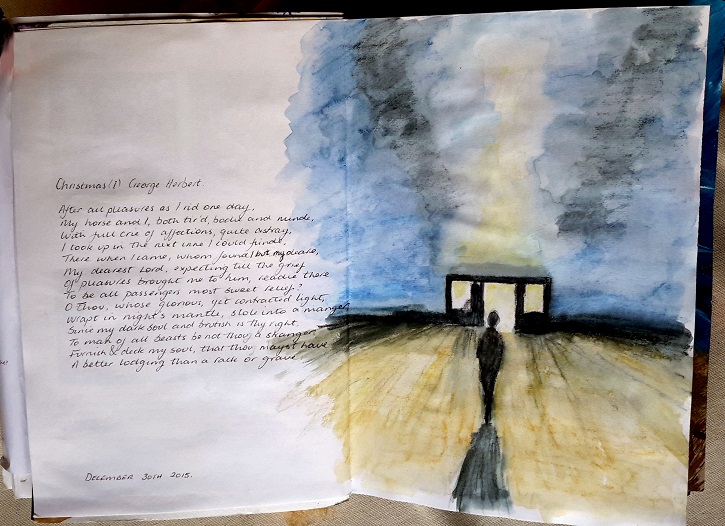 Christmas (1) George Herbert.
After all pleasures as I rid one day,
My horse and I, both tir'd, bodie and minde,
With full crie of affections, quite astray,
I took up in the next inne I could finde,
There when I came, whom found I but my deare,
My dearest Lord, expecting till the grief
Of pleasures brought me to him, readie there
To be all passengers most sweet relief?
O thou, whose glorious, yet contracted light,
Wrapt in night's mantle, stole into a manger,
Since my dark soul and brutish is thy right,
To man of all beasts be not thou a stranger.
Furnish & deck my soul, that thou mayst have
A better lodging than a rack or grave
DECEMBER 30TH 2015.